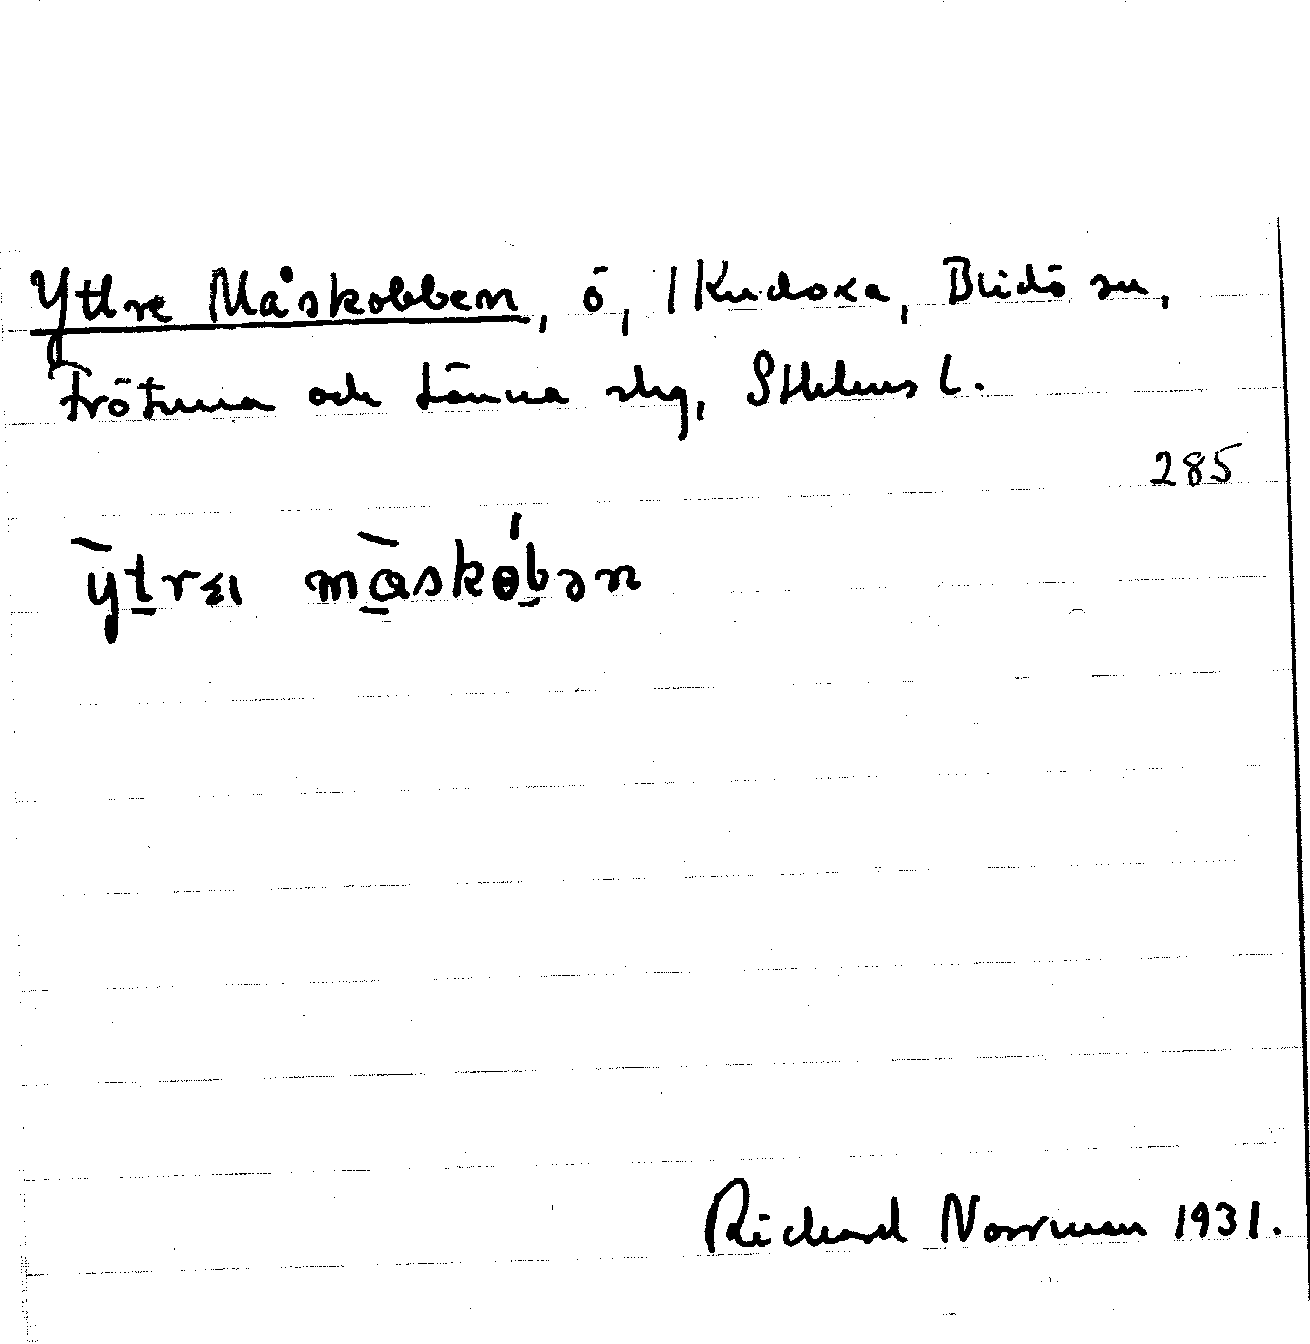 Yttre Måskobben, ö, 1 Kudoxa, Blidö sn,
Frötuna och Länna slg, Sthlms l.
285
ỳtrɛı màskóbən
Richard Norrman 1931.